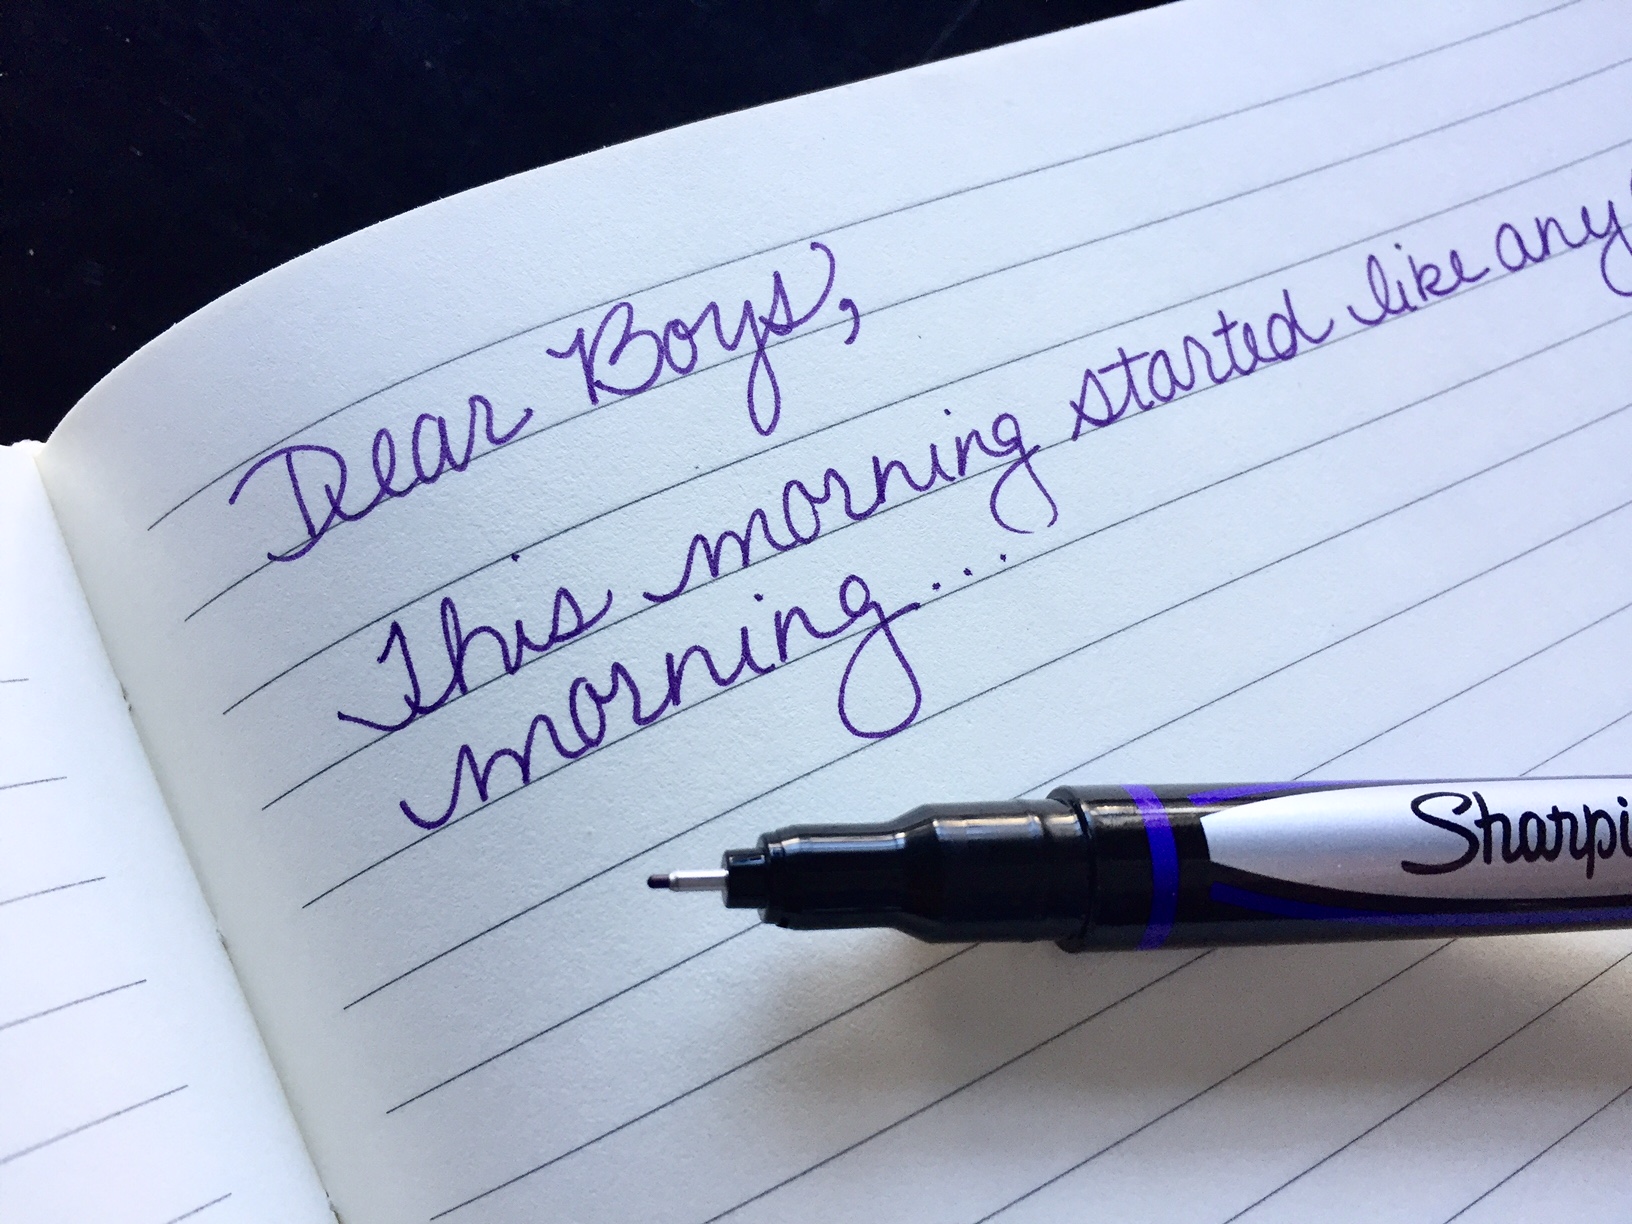 Dear Boys,
This morning started like any
morning...
Sharpi